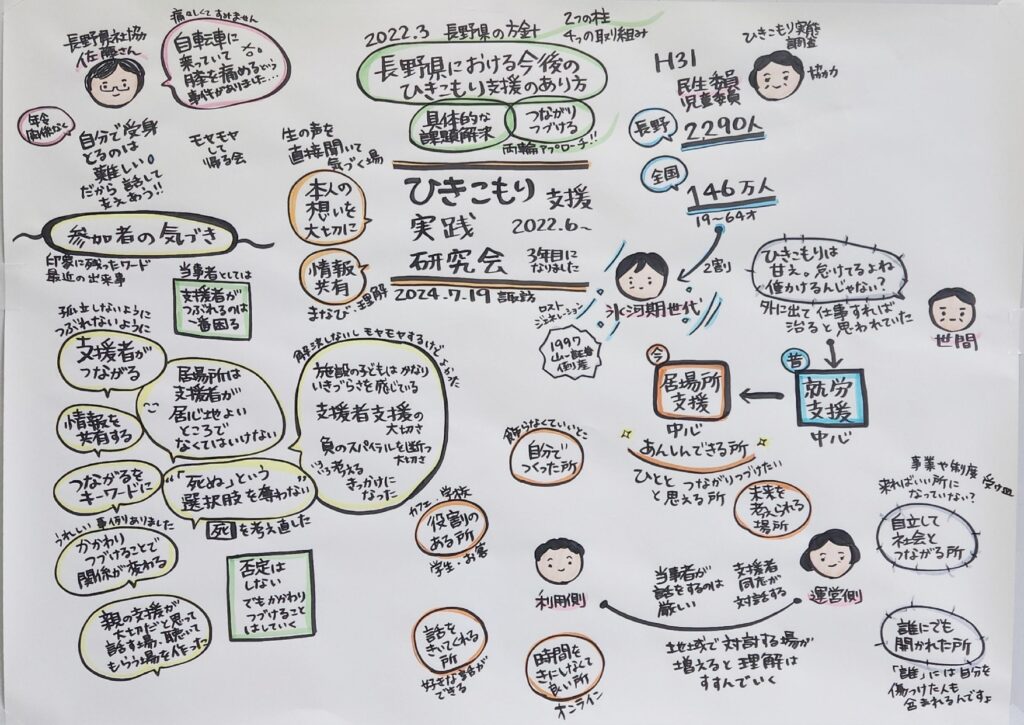 長野県社協
佐藤さん
痛々しくてすみません
自転車に
乗っていて
膝を痛めるという
事件がありました…
年令
関係なく
自分で受身
とるのは
難しい。
だから話して
支えあう!!
モヤモヤ
して
帰る会
2022.3 長野県の方針
2つの柱
4つの取り組み
長野県における今後の
ひきこもり支援のあり方
具体的な
課題解決
つながり
つづける
両輪アプローチ!!
生の声を
直接聞いて
気づく場
本人の
想いを
大切に
情報
共有
まなび・理解
ひきこもり支援
実践 2022.6~
研究会 3年目に
なりました
2024.7.19 諏訪
ひきこもり実態
調査
協力
H31
民生委員
児童委員
長野
2290人
全国
146万人
19~64才
2割
氷河期世代
ロスト
ジェネレーション
1997
山一証券
倒産
ひきこもりは
甘え。怠けてるよね
働かけるんじゃない?
外に出て仕事すれば
治ると思われていた
世間
昔
就労
支援
中心
今
居場所
支援
中心
あんしんできる所
ひとと つながりつづけたい
と思える所
未来を
考えられる
場所
参加者の気づき
印象に残ったワード
最近の出来事
当事者としては
支援者が
つぶれるのは
一番困る
孤立しないように
つぶれないように
支援者が
つながる
情報を
共有する
つながるを
キーワードに
居場所は
支援者が
居心地よい
ところで
なくてはいけない
"「死ぬ」という
選択肢を奪わない"
死を考え直した
解決しないしモヤモヤするけどよかった
施設の子どもはかなり
いきづらさを感じている
支援者支援の
大切さ
負のスパイラルを断つ
大切さ
いろいろ考える
きっかけに
なった
うれしい事例ありました
かかわり
つづけることで
関係が変わる
否定は
しない
でもかかわり
つづけること
はしていく
親の支援が
大切だと思って
話す場、聴いて
もらう場を作った
飾らなくていいとこ
自分で
つくった所
カフェ・学校
役割の
ある所
学生・お客
話を
きいてくれる
所
好きな話が
できる
時間を
きにしなくて
良い所
オンライン
利用側
運営側
当事者が
話をするのは
厳しい
支援者
同志が
対話する
地域で対討する場が
増えると理解は
すすんでいく
事業や制度
受け皿
来ればいい所に
なっていない?
自立して
社会と
つながる所
誰にでも
開かれた所
「誰」には自分を
傷つけた人も
含まれるんですよ